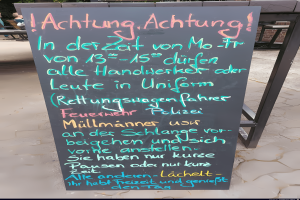 !Achtung, Achtung!
In der Zeit von Mo-Fr
von 13⁰⁰-15⁰⁰ dürfen
alle Handwerker oder
Leute in Uniform
(Rettungswagenfahrer
Feuerwehr Polizei
Müllmänner usw
an der Schlange vor-
beigehen und sich
vorne anstellen.
Sie haben nur kurze
Pausen oder nur kurze
Zeit
Alle anderen - Lächelt -
ihr habt Freizeit und genießt
den Tag